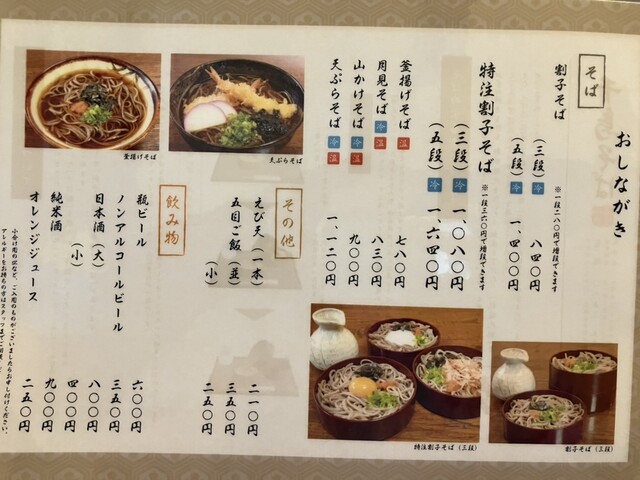 おしながき
そば
割子そば
(三段) 冷 八四〇円
(五段) 冷 一、四〇〇円
※一段二八〇円で増段できます
特注割子そば
(三段) 冷 一、〇八〇円
(五段) 冷 一、六四〇円
※一段三六〇円で増段できます
釜揚げそば 温 七八〇円
月見そば 冷 温 八三〇円
山かけそば 冷 温 九〇〇円
天ぷらそば 冷 温 一、一二〇円
その他
えび天(一本) 二一〇円
五目ご飯(並) 三五〇円
(小) 二五〇円
飲み物
瓶ビール 六〇〇円
ノンアルコールビール 三五〇円
日本酒(大) 八〇〇円
(小) 四〇〇円
純米酒 九〇〇円
オレンジジュース 二五〇円
小分け用の器など、ご入用のものがございましたらお申し付けください。
釜揚げそば
天ぷらそば
特注割子そば(三段)
割子そば(三段)